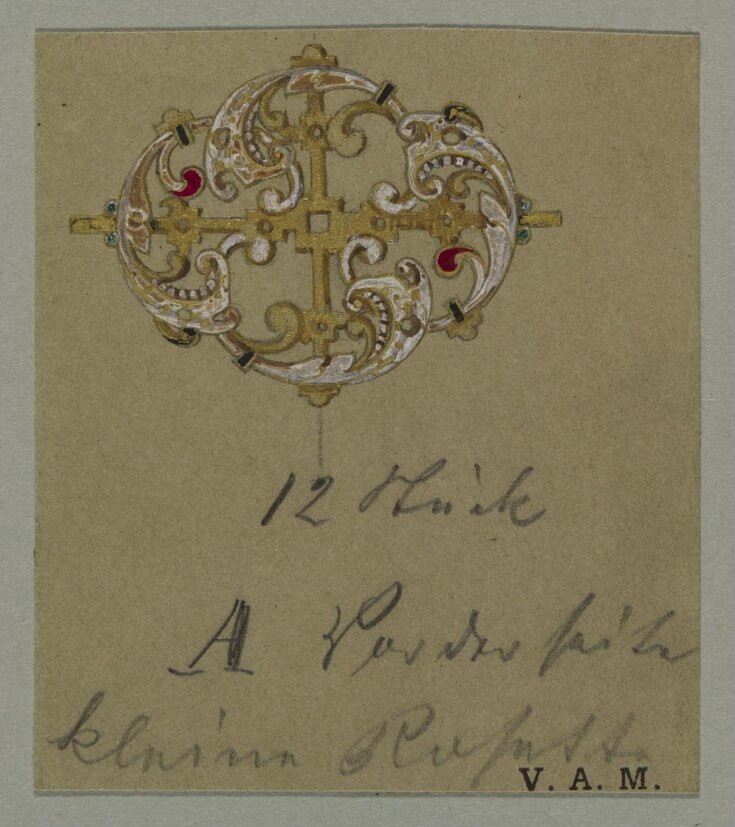 12 Stück
A Vorderseite
kleine Rosette
V. A. M.